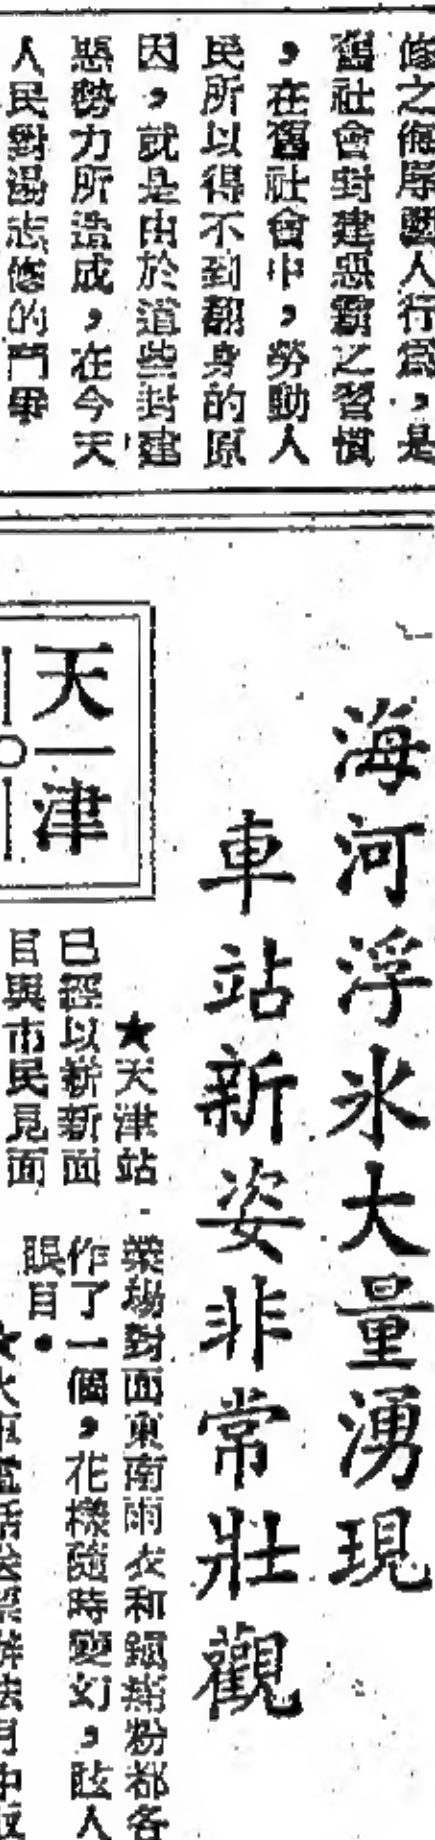 修之海岸藝人行爲，是
舊社會封建惡霸之習慣
，在舊社會中，勞動人
民所以得不到翻身的原
因，就是由於這些封建
惡勢力所造成，在今天
人民對湯志修的鬥爭
海河浮氷大量湧現
車站新姿非常壯觀
天津
★天津站
已經以嶄新面
目與市民見面
業場對面東南雨衣和鍜粉都各
作了一個，花樣隨時變幻，眩人
眼目。